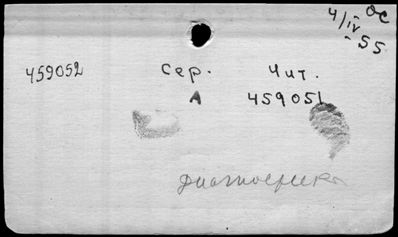 4/IV ОС
– 55
459052 Сер. Чит.
А 459051